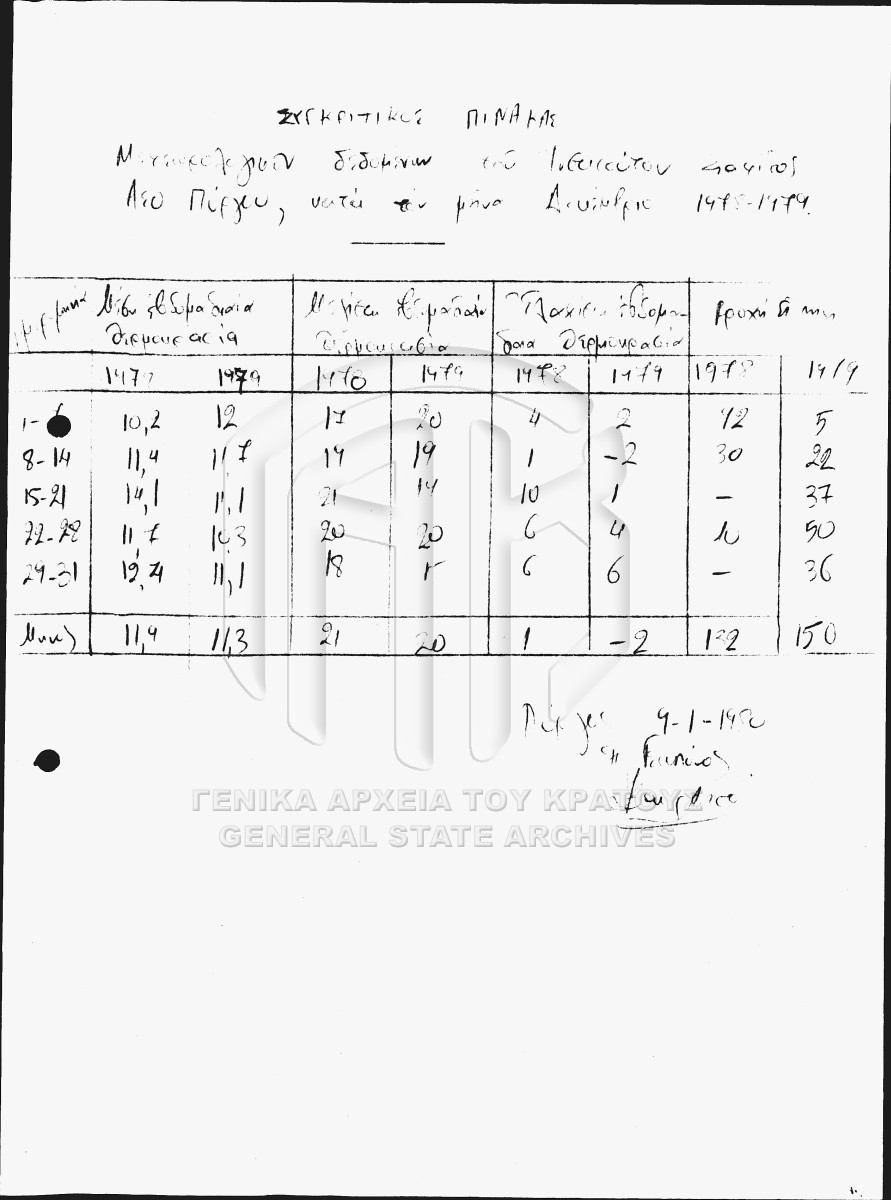 ΣΥΓΚΡΙΤΙΚΟΣ ΠΙΝΑΚΑΣ
Μετεωρολογικών δεδομένων του Ινστιτούτου Σταφίδος
Πύργου, κατά τον μήνα Δεκέμβριο 1978-1979.
Μέση εβδομαδιαία Μεγίστη εβδομαδιαία Ελαχίστη εβδομα- Βροχή σε
θερμοκρασία θερμοκρασία διαία θερμοκρασία
1979 1978 1979 1978 1979 1978 1979
10,2 12 17 20 4 2 5
8-14 11,4 11,7 19 1 -2 30 22
15-21 14,1 11,1 21 10 1 - 37
22-28 11,7 10,3 20 20 6 4 10 50
29-31 12,4 11,1 18 6 6 - 36
11,4 11,3 21 20 1 -2 150
Πύργος 9-1-1980
ΓΕΝΙΚΑ ΑΡΧΕΙΑ ΤΟΥ ΚΡΑΤΟΥΣ
GENERAL STATE ARCHIVES